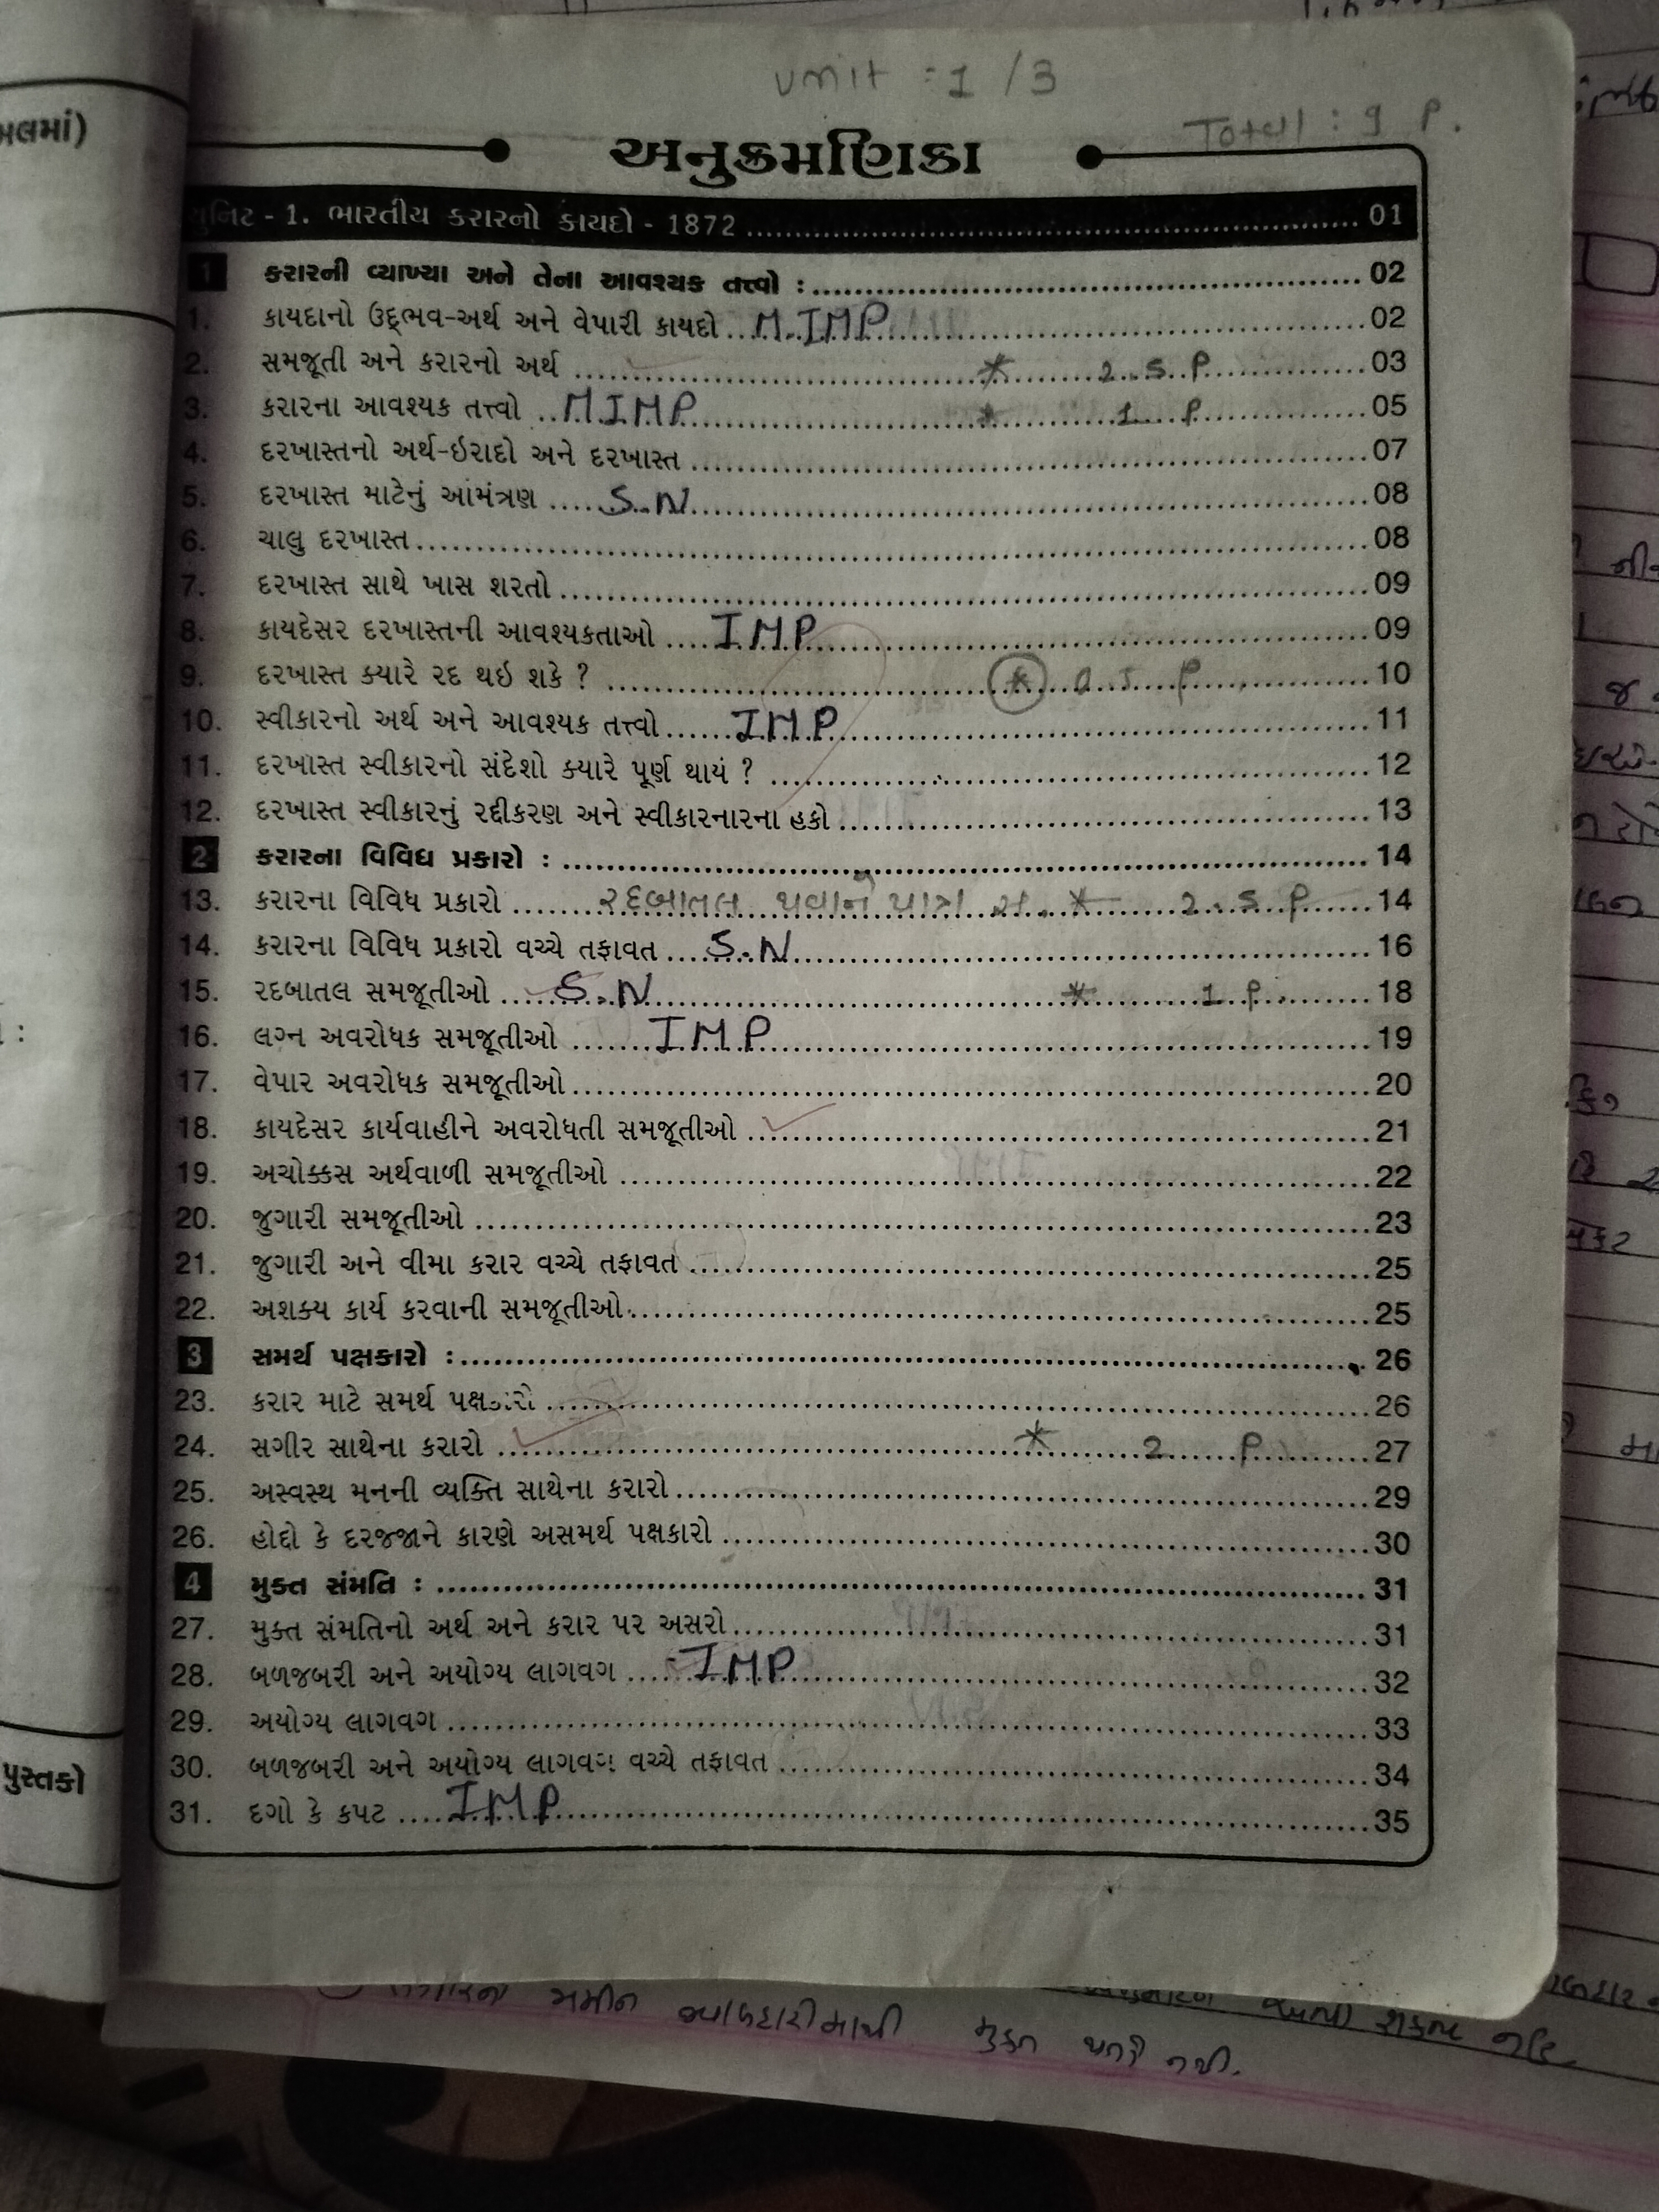 unit : 1 / 3
Total : 9 P.
અનુક્રમણિકા
યુનિટ - 1. ભારતીય કરારનો કાયદો - 1872 ........ 01
1 કરારની વ્યાખ્યા અને તેના આવશ્યક તત્ત્વો : ........ 02
1. કાયદાનો ઉદ્ભવ-અર્થ અને વેપારી કાયદો ... M.IMP ........ 02
2. સમજૂતી અને કરારનો અર્થ ........ * 2.5 P ........ 03
3. કરારના આવશ્યક તત્ત્વો ... M IMP ........ * 1 P ........ 05
4. દરખાસ્તનો અર્થ-ઇરાદો અને દરખાસ્ત ........ 07
5. દરખાસ્ત માટેનું આમંત્રણ .... S.N ........ 08
6. ચાલુ દરખાસ્ત ........ 08
7. દરખાસ્ત સાથે ખાસ શરતો ........ 09
8. કાયદેસર દરખાસ્તની આવશ્યકતાઓ .... IMP ........ 09
9. દરખાસ્ત ક્યારે રદ થઇ શકે ? ........ * P ........ 10
10. સ્વીકારનો અર્થ અને આવશ્યક તત્ત્વો ...... IMP ........ 11
11. દરખાસ્ત સ્વીકારનો સંદેશો ક્યારે પૂર્ણ થાય ? ........ 12
12. દરખાસ્ત સ્વીકારનું રદ્દીકરણ અને સ્વીકારનારના હકો ........ 13
2 કરારના વિવિધ પ્રકારો : ........ 14
13. કરારના વિવિધ પ્રકારો ...... રદબાતલ થવાને પાત્ર સ. * 2.5 P ...... 14
14. કરારના વિવિધ પ્રકારો વચ્ચે તફાવત .... S.N ........ 16
15. રદબાતલ સમજૂતીઓ .... S.N ........ * 1 P ........ 18
16. લગ્ન અવરોધક સમજૂતીઓ ...... IMP ........ 19
17. વેપાર અવરોધક સમજૂતીઓ ........ 20
18. કાયદેસર કાર્યવાહીને અવરોધતી સમજૂતીઓ ........ 21
19. અચોક્કસ અર્થવાળી સમજૂતીઓ ........ 22
20. જુગારી સમજૂતીઓ ........ 23
21. જુગારી અને વીમા કરાર વચ્ચે તફાવત ........ 25
22. અશક્ય કાર્ય કરવાની સમજૂતીઓ ........ 25
3 સમર્થ પક્ષકારો : ........ 26
23. કરાર માટે સમર્થ પક્ષકારો ........ 26
24. સગીર સાથેના કરારો ........ * 2 P ........ 27
25. અસ્વસ્થ મનની વ્યક્તિ સાથેના કરારો ........ 29
26. હોદ્દો કે દરજ્જાને કારણે અસમર્થ પક્ષકારો ........ 30
4 મુક્ત સંમતિ : ........ 31
27. મુક્ત સંમતિનો અર્થ અને કરાર પર અસરો ........ 31
28. બળજબરી અને અયોગ્ય લાગવગ .... IMP ........ 32
29. અયોગ્ય લાગવગ ........ 33
30. બળજબરી અને અયોગ્ય લાગવગ વચ્ચે તફાવત ........ 34
31. દગો કે કપટ .... IMP ........ 35
પુસ્તકો
જામીન જવાબદારીમાંથી મુક્ત થતો નથી.